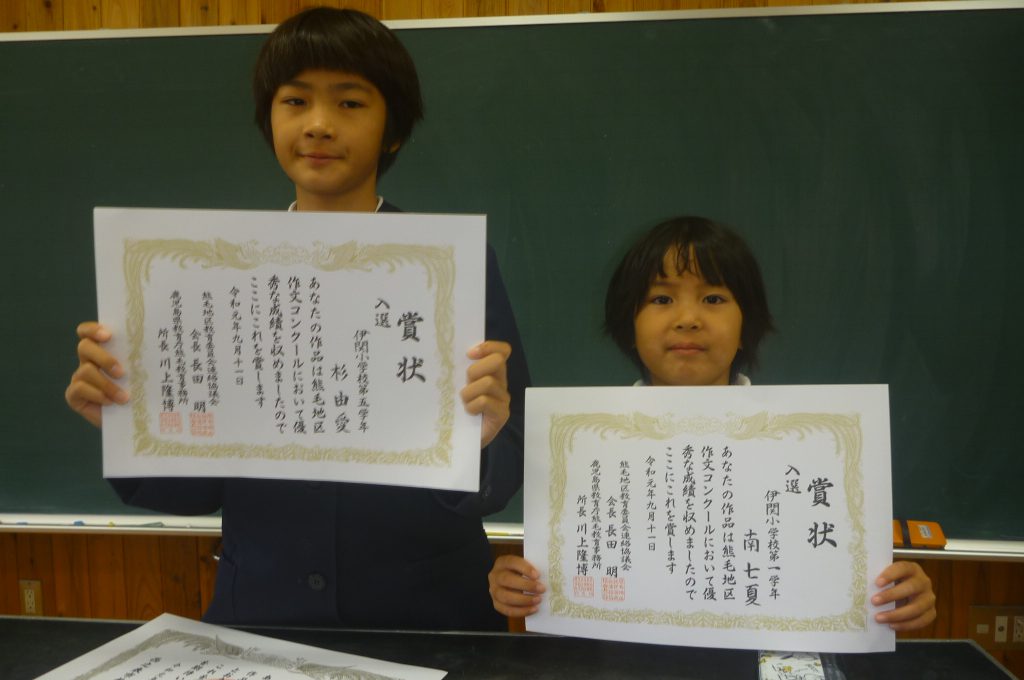 賞状
入選
伊関小学校第五学年
杉由愛
あなたの作品は熊毛地区
作文コンクールにおいて優
秀な成績を収めましたので
ここにこれを賞します
令和元年九月十一日
熊毛地区教育委員会連絡協議会
会長 長田 明
鹿児島県教育庁熊毛教育事務所
所長 川上隆博
賞状
入選
伊関小学校第一学年
南七夏
あなたの作品は熊毛地区
作文コンクールにおいて優
秀な成績を収めましたので
ここにこれを賞します
令和元年九月十一日
熊毛地区教育委員会連絡協議会
会長 長田 明
鹿児島県教育庁熊毛教育事務所
所長 川上隆博